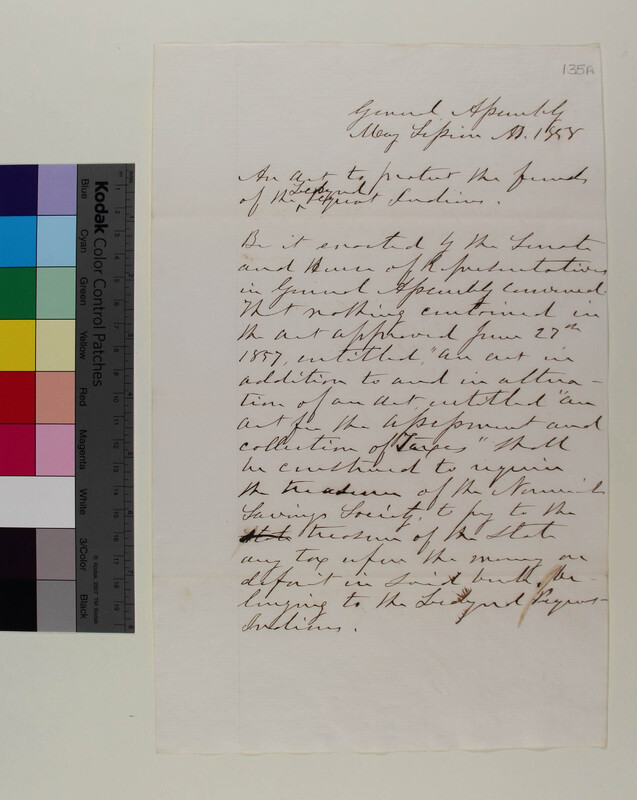 135A
General Assembly
May Session AD. 1858
An act to protect the funds
Ledyard
of the Pequot Indians.
Be it enacted by the Senate
and House of Representatives
in General Assembly convened
That nothing contained in
the act approved June 27th
1857, entitled, "an act in
addition to and in altera-
tion of an act entitled "an
act for the assessment and
collection of Taxes" shall
be construed to require
the treasurer of the Norwich
Savings Society, to pay to the
treasurer of the State
any tax upon the money on
deposit in said bank, be-
longing to the Ledyard Pequot
Indians.
Kodak Color Control Patches
Blue
Cyan
Green
Yellow
Red
Magenta
White
3/Color
Black